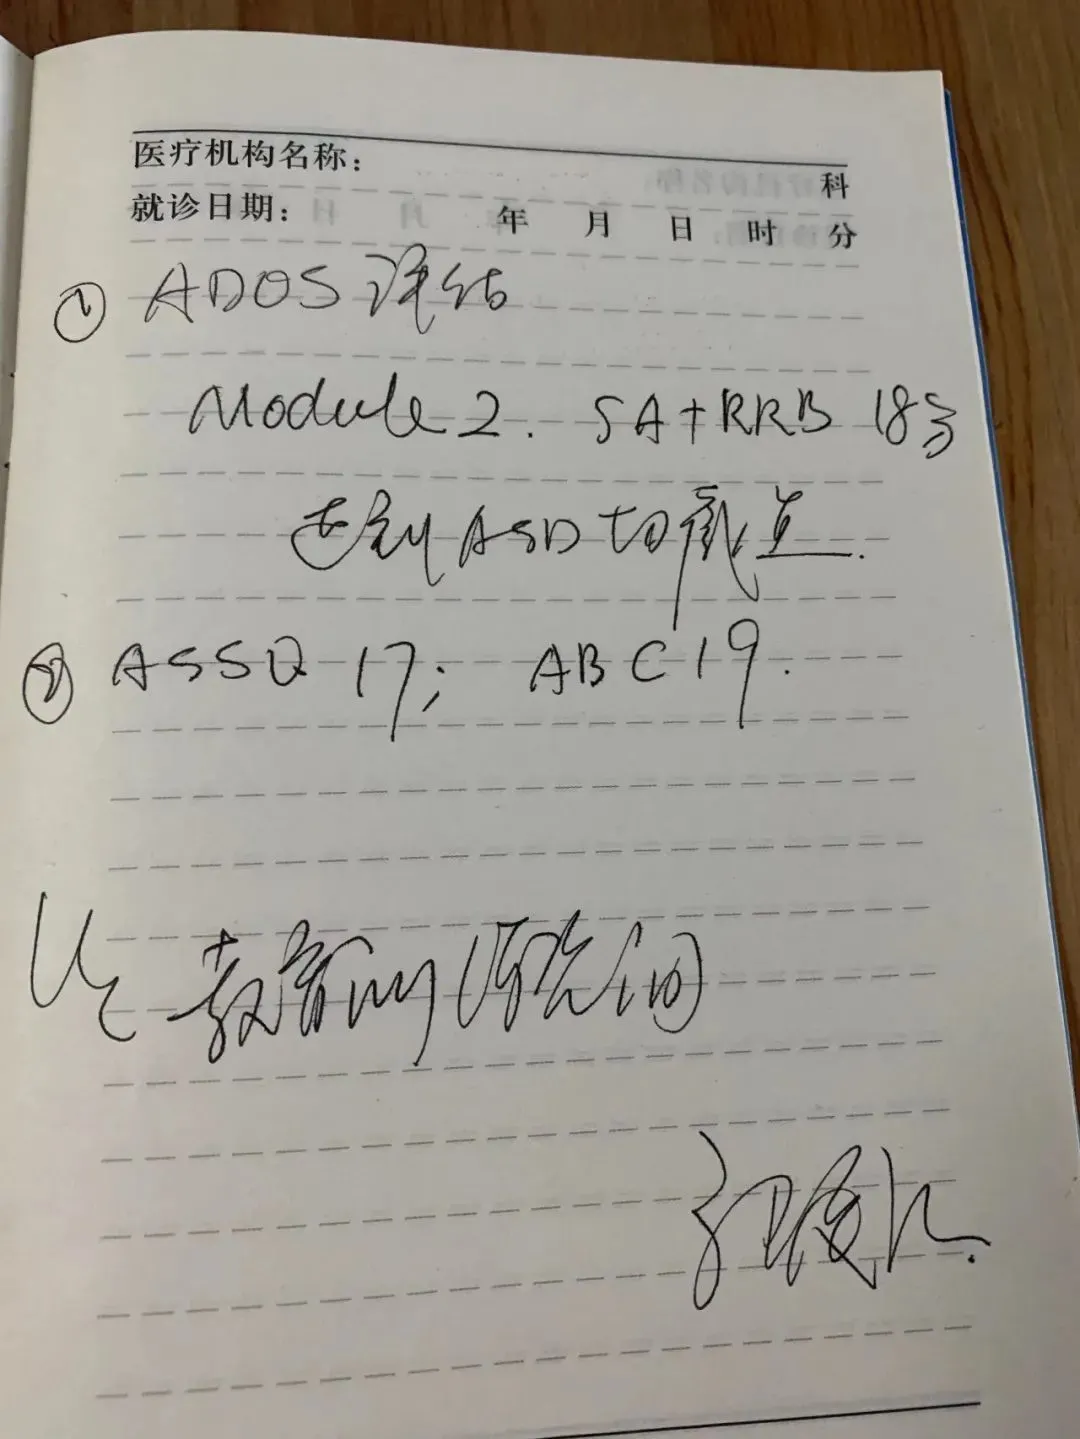 医疗机构名称：
科
就诊日期： 年 月 日 时 分
① ADOS 评估
Module 2. SA+RRB 18分
达到 ASD 切截点.
② ASSQ 17; ABC 19.
教育训